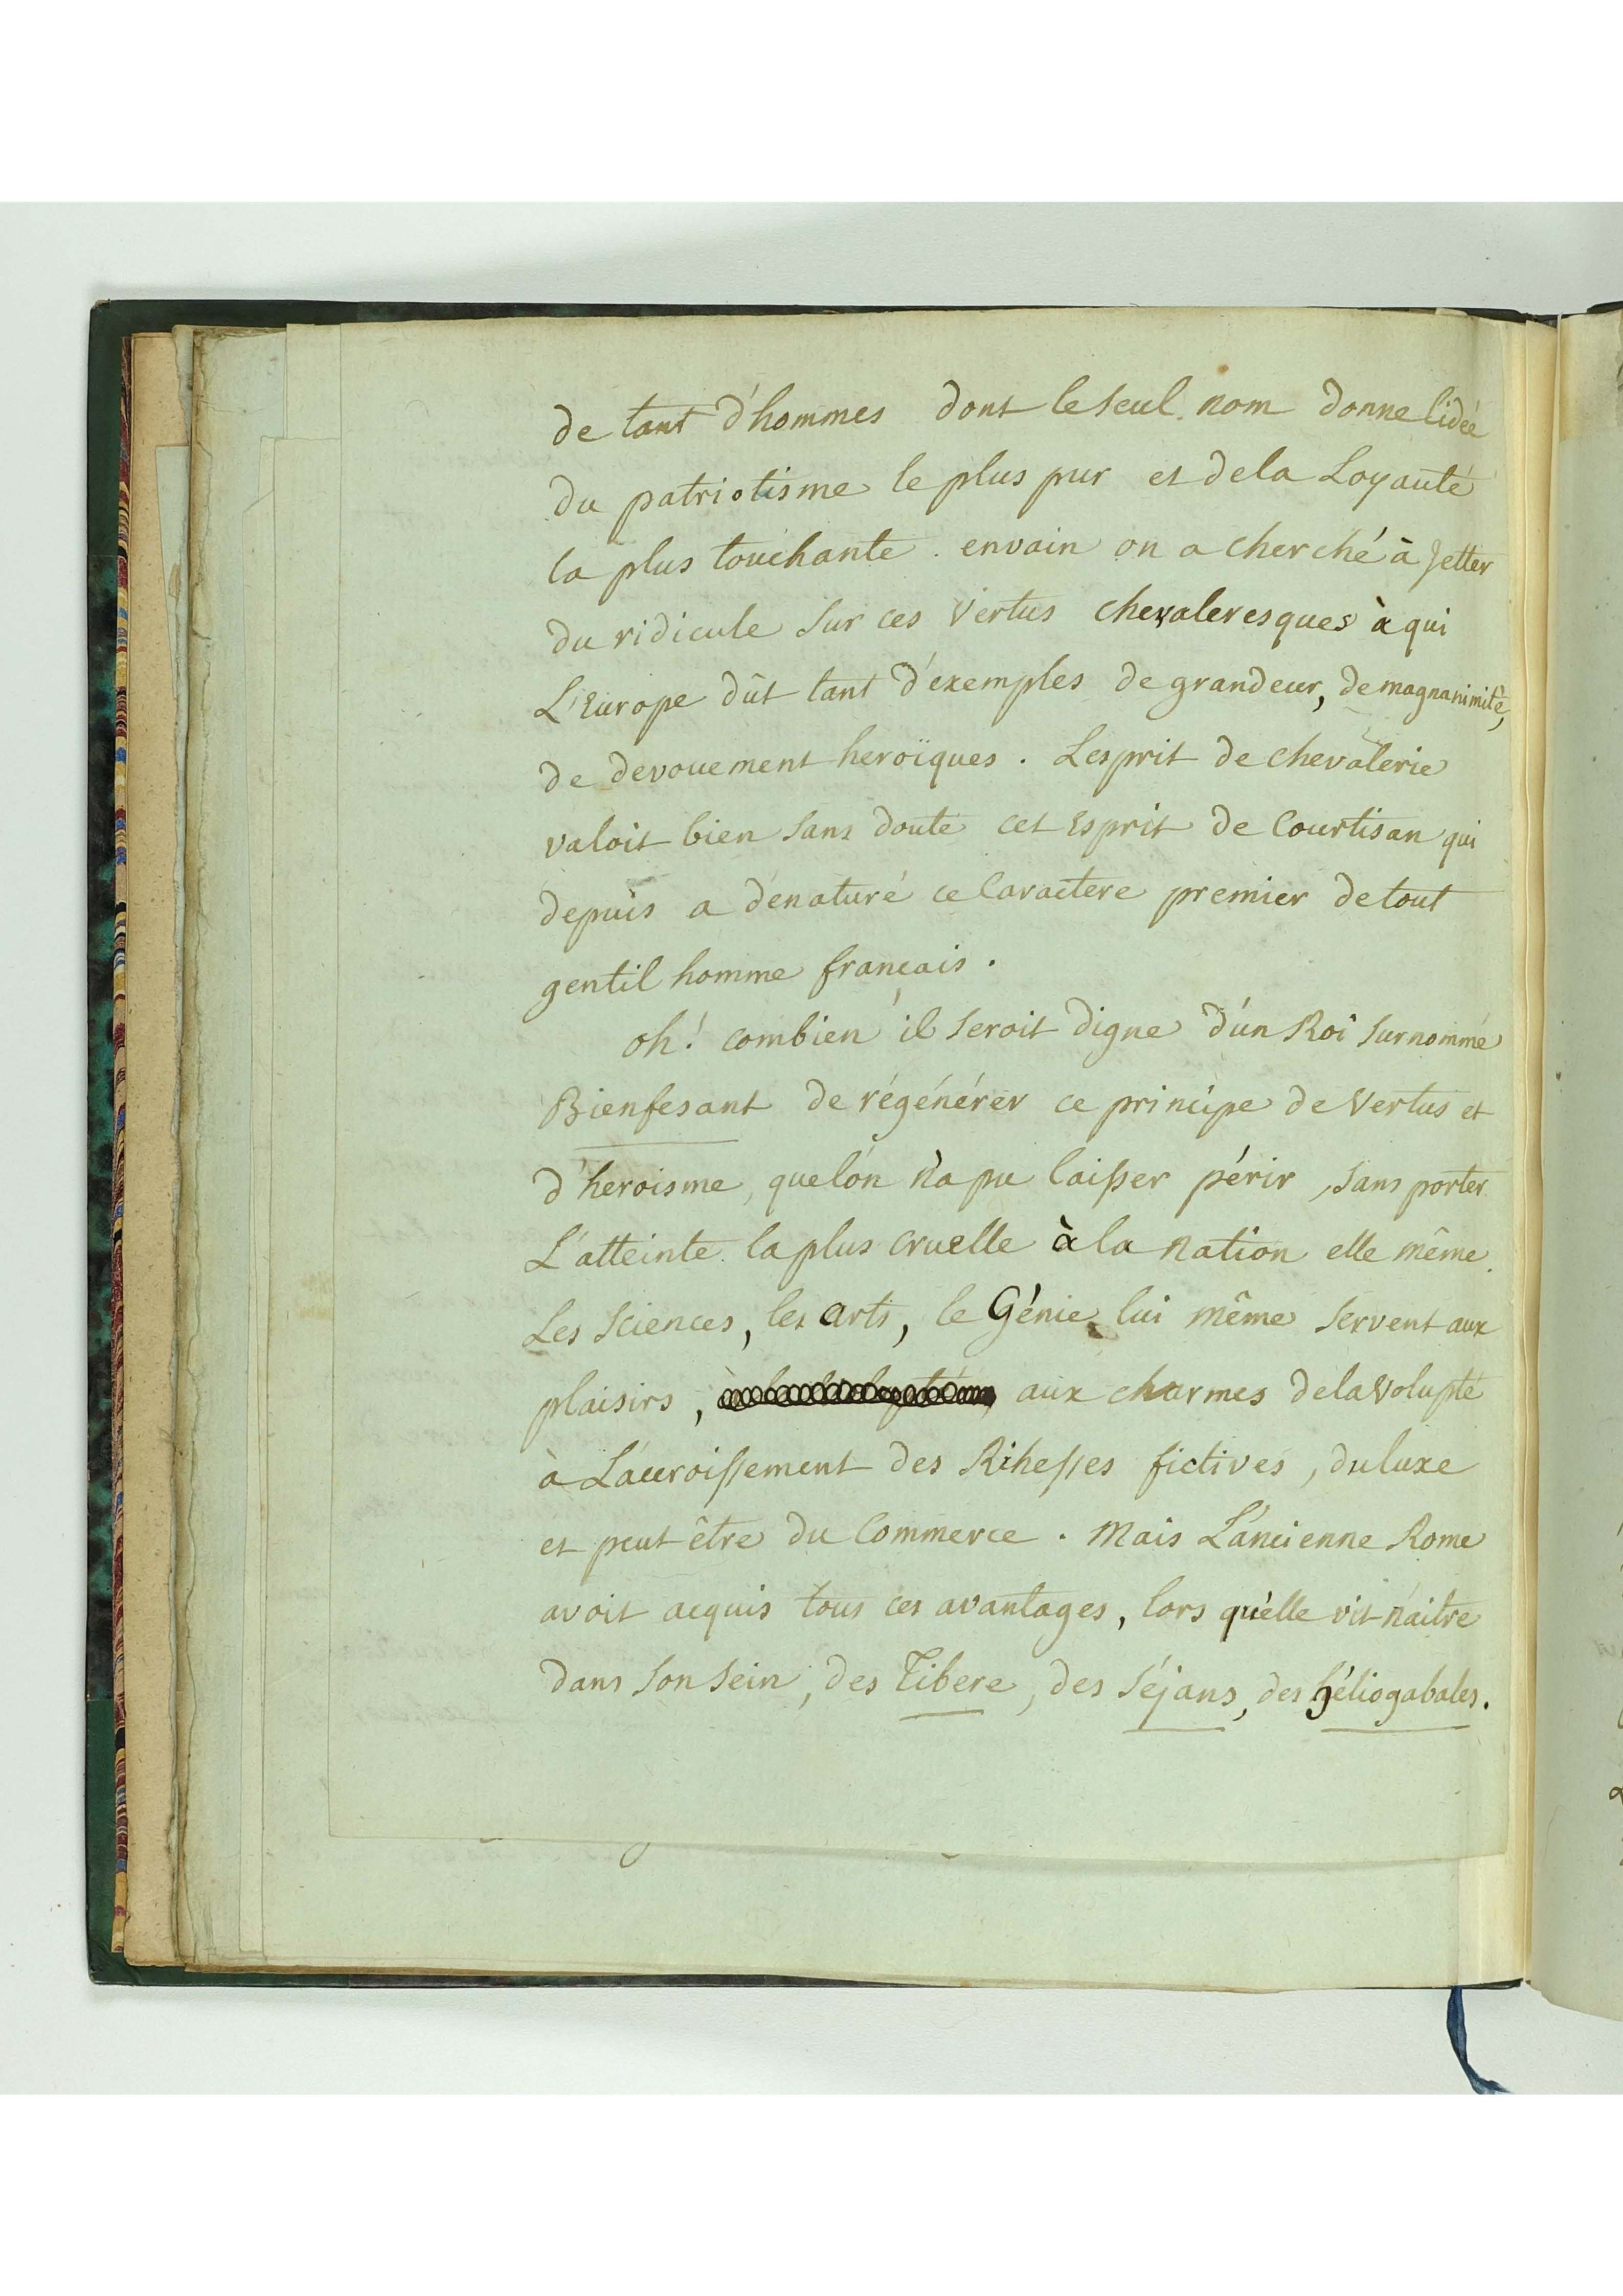 de tant d'hommes dont le seul nom donne lidée
du patriotisme le plus pur et dela Loyauté
la plus touchante. envain on a cherché à Jetter
du ridicule sur ces vertus chevaleresques à qui
L'Europe dût tant d'exemples de grandeur, de magnanimité,
de devouement heroïques. Lesprit de chevalerie
valoit bien sans doute cet Esprit de Courtisan qui
depuis a dénaturé ce Caractere premier de tout
gentil homme français.
oh! combien il seroit digne d'ún Roi surnommé
Bienfesant de régénérer ce principe de vertus et
d'heroisme, que lón n'a pu laisser périr, sans porter
L'atteinte la plus cruelle à la nation elle même.
Les sciences, les arts, le Génie lui même servent aux
plaisirs, aux charmes dela volupté
à Láccroissement des Rihesses fictives, du luxe
et peut être du Commerce. Mais Láncienne Rome
avoit acquis tous ces avantages, lors qu'elle vit naître
dans son sein, des Tibere, des Séjans, des héliogabales.